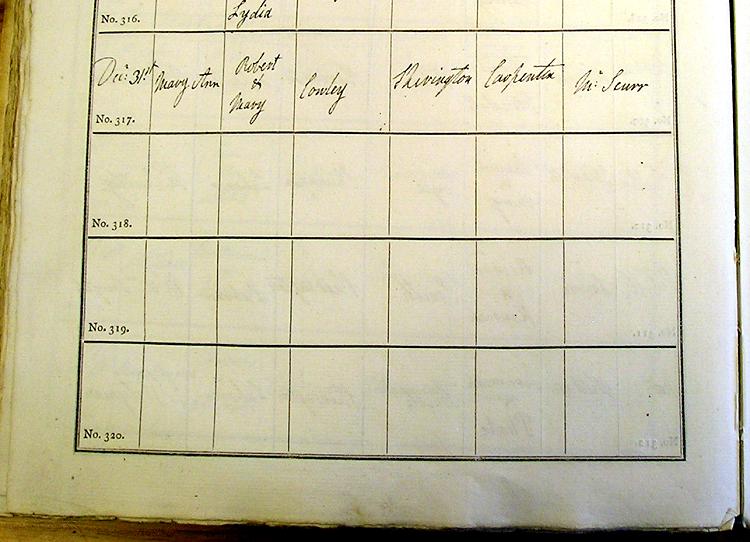 Lydia
No. 316.
Decr. 31st Mary Ann Robert & Mary Cowley Skevington Carpenter Mr. Scurr
No. 317.
No. 318.
No. 319.
No. 320.